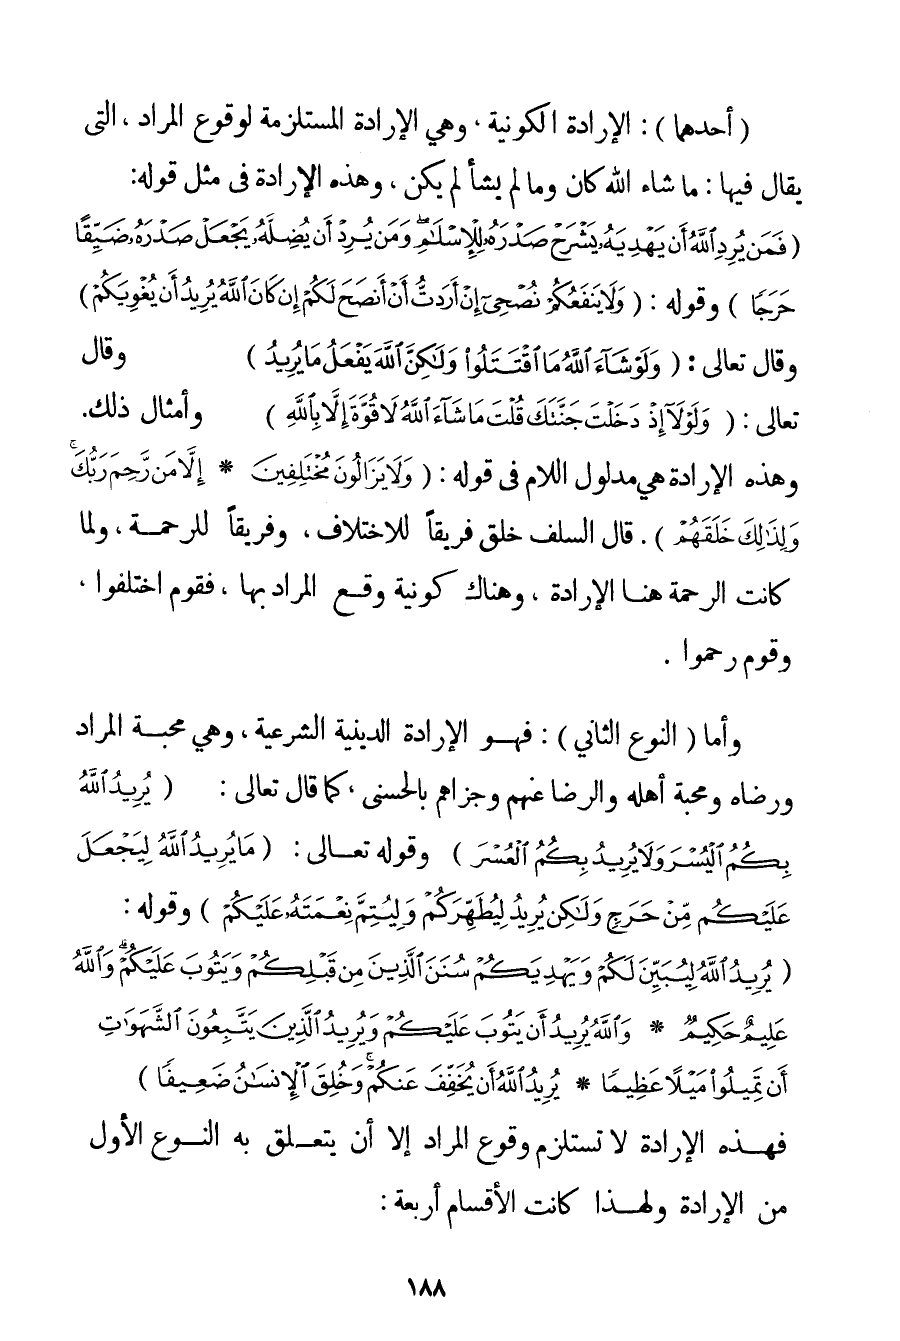 ( أحدهما ) : الإرادة الكونية ، وهي الإرادة المستلزمة لوقوع المراد ، التى
يقال فيها : ما شاء الله كان وما لم يشأ لم يكن ، وهذه الإرادة فى مثل قوله:
( فَمَن يُرِدِ ٱللَّهُ أَن يَهْدِيَهُۥ يَشْرَحْ صَدْرَهُۥ لِلْإِسْلَٰمِ ۖ وَمَن يُرِدْ أَن يُضِلَّهُۥ يَجْعَلْ صَدْرَهُۥ ضَيِّقًا
حَرَجًا ) وقوله : ( وَلَا يَنفَعُكُمْ نُصْحِىٓ إِنْ أَرَدتُّ أَنْ أَنصَحَ لَكُمْ إِن كَانَ ٱللَّهُ يُرِيدُ أَن يُغْوِيَكُمْ )
وقال تعالى : ( وَلَوْ شَآءَ ٱللَّهُ مَا ٱقْتَتَلُوا۟ وَلَٰكِنَّ ٱللَّهَ يَفْعَلُ مَا يُرِيدُ ) وقال
تعالى : ( وَلَوْلَآ إِذْ دَخَلْتَ جَنَّتَكَ قُلْتَ مَا شَآءَ ٱللَّهُ لَا قُوَّةَ إِلَّا بِٱللَّهِ ) وأمثال ذلك.
وهذه الإرادة هي مدلول اللام فى قوله : ( وَلَا يَزَالُونَ مُخْتَلِفِينَ * إِلَّا مَن رَّحِمَ رَبُّكَ ۚ
وَلِذَٰلِكَ خَلَقَهُمْ ) . قال السلف خلق فريقاً للاختلاف ، وفريقاً للرحمـة ، ولما
كانت الرحمة هنـا الإرادة ، وهناك كونية وقـع المراد بها ، فقوم اختلفوا ،
وقوم رحموا .
وأما ( النوع الثاني ) : فهـو الإرادة الدينية الشرعية ، وهي محبـة المراد
ورضاه ومحبة أهله والرضا عنهم وجزاهم بالحسنى ، كما قال تعالى : ( يُرِيدُ ٱللَّهُ
بِكُمُ ٱلْيُسْرَ وَلَا يُرِيدُ بِكُمُ ٱلْعُسْرَ ) وقوله تعـالى : ( مَا يُرِيدُ ٱللَّهُ لِيَجْعَلَ
عَلَيْكُم مِّنْ حَرَجٍ وَلَٰكِن يُرِيدُ لِيُطَهِّرَكُمْ وَلِيُتِمَّ نِعْمَتَهُۥ عَلَيْكُمْ ) وقوله :
( يُرِيدُ ٱللَّهُ لِيُبَيِّنَ لَكُمْ وَيَهْدِيَكُمْ سُنَنَ ٱلَّذِينَ مِن قَبْلِكُمْ وَيَتُوبَ عَلَيْكُمْ ۗ وَٱللَّهُ
عَلِيمٌ حَكِيمٌ * وَٱللَّهُ يُرِيدُ أَن يَتُوبَ عَلَيْكُمْ وَيُرِيدُ ٱلَّذِينَ يَتَّبِعُونَ ٱلشَّهَوَٰتِ
أَن تَمِيلُوا۟ مَيْلًا عَظِيمًا * يُرِيدُ ٱللَّهُ أَن يُخَفِّفَ عَنكُمْ ۚ وَخُلِقَ ٱلْإِنسَٰنُ ضَعِيفًا )
فهـذه الإرادة لا تستلزم وقوع المراد إلا أن يتعـلق به النـوع الأول
من الإرادة ولهـذا كانت الأقسام أربعة :
١٨٨